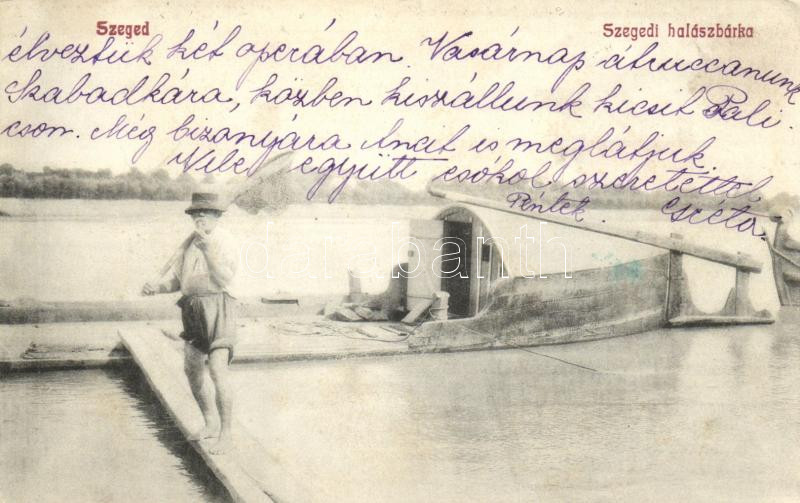 Szeged
Szegedi halászbárka
élveztük két operában. Vasárnap átruccanunk
Szabadkára, közben kiszállunk kicsit Pali
cson. Még bizonyára Ancit is meglátjuk.
Vele együtt csókol szeretettel
Péntek. Czéta.
darabanth